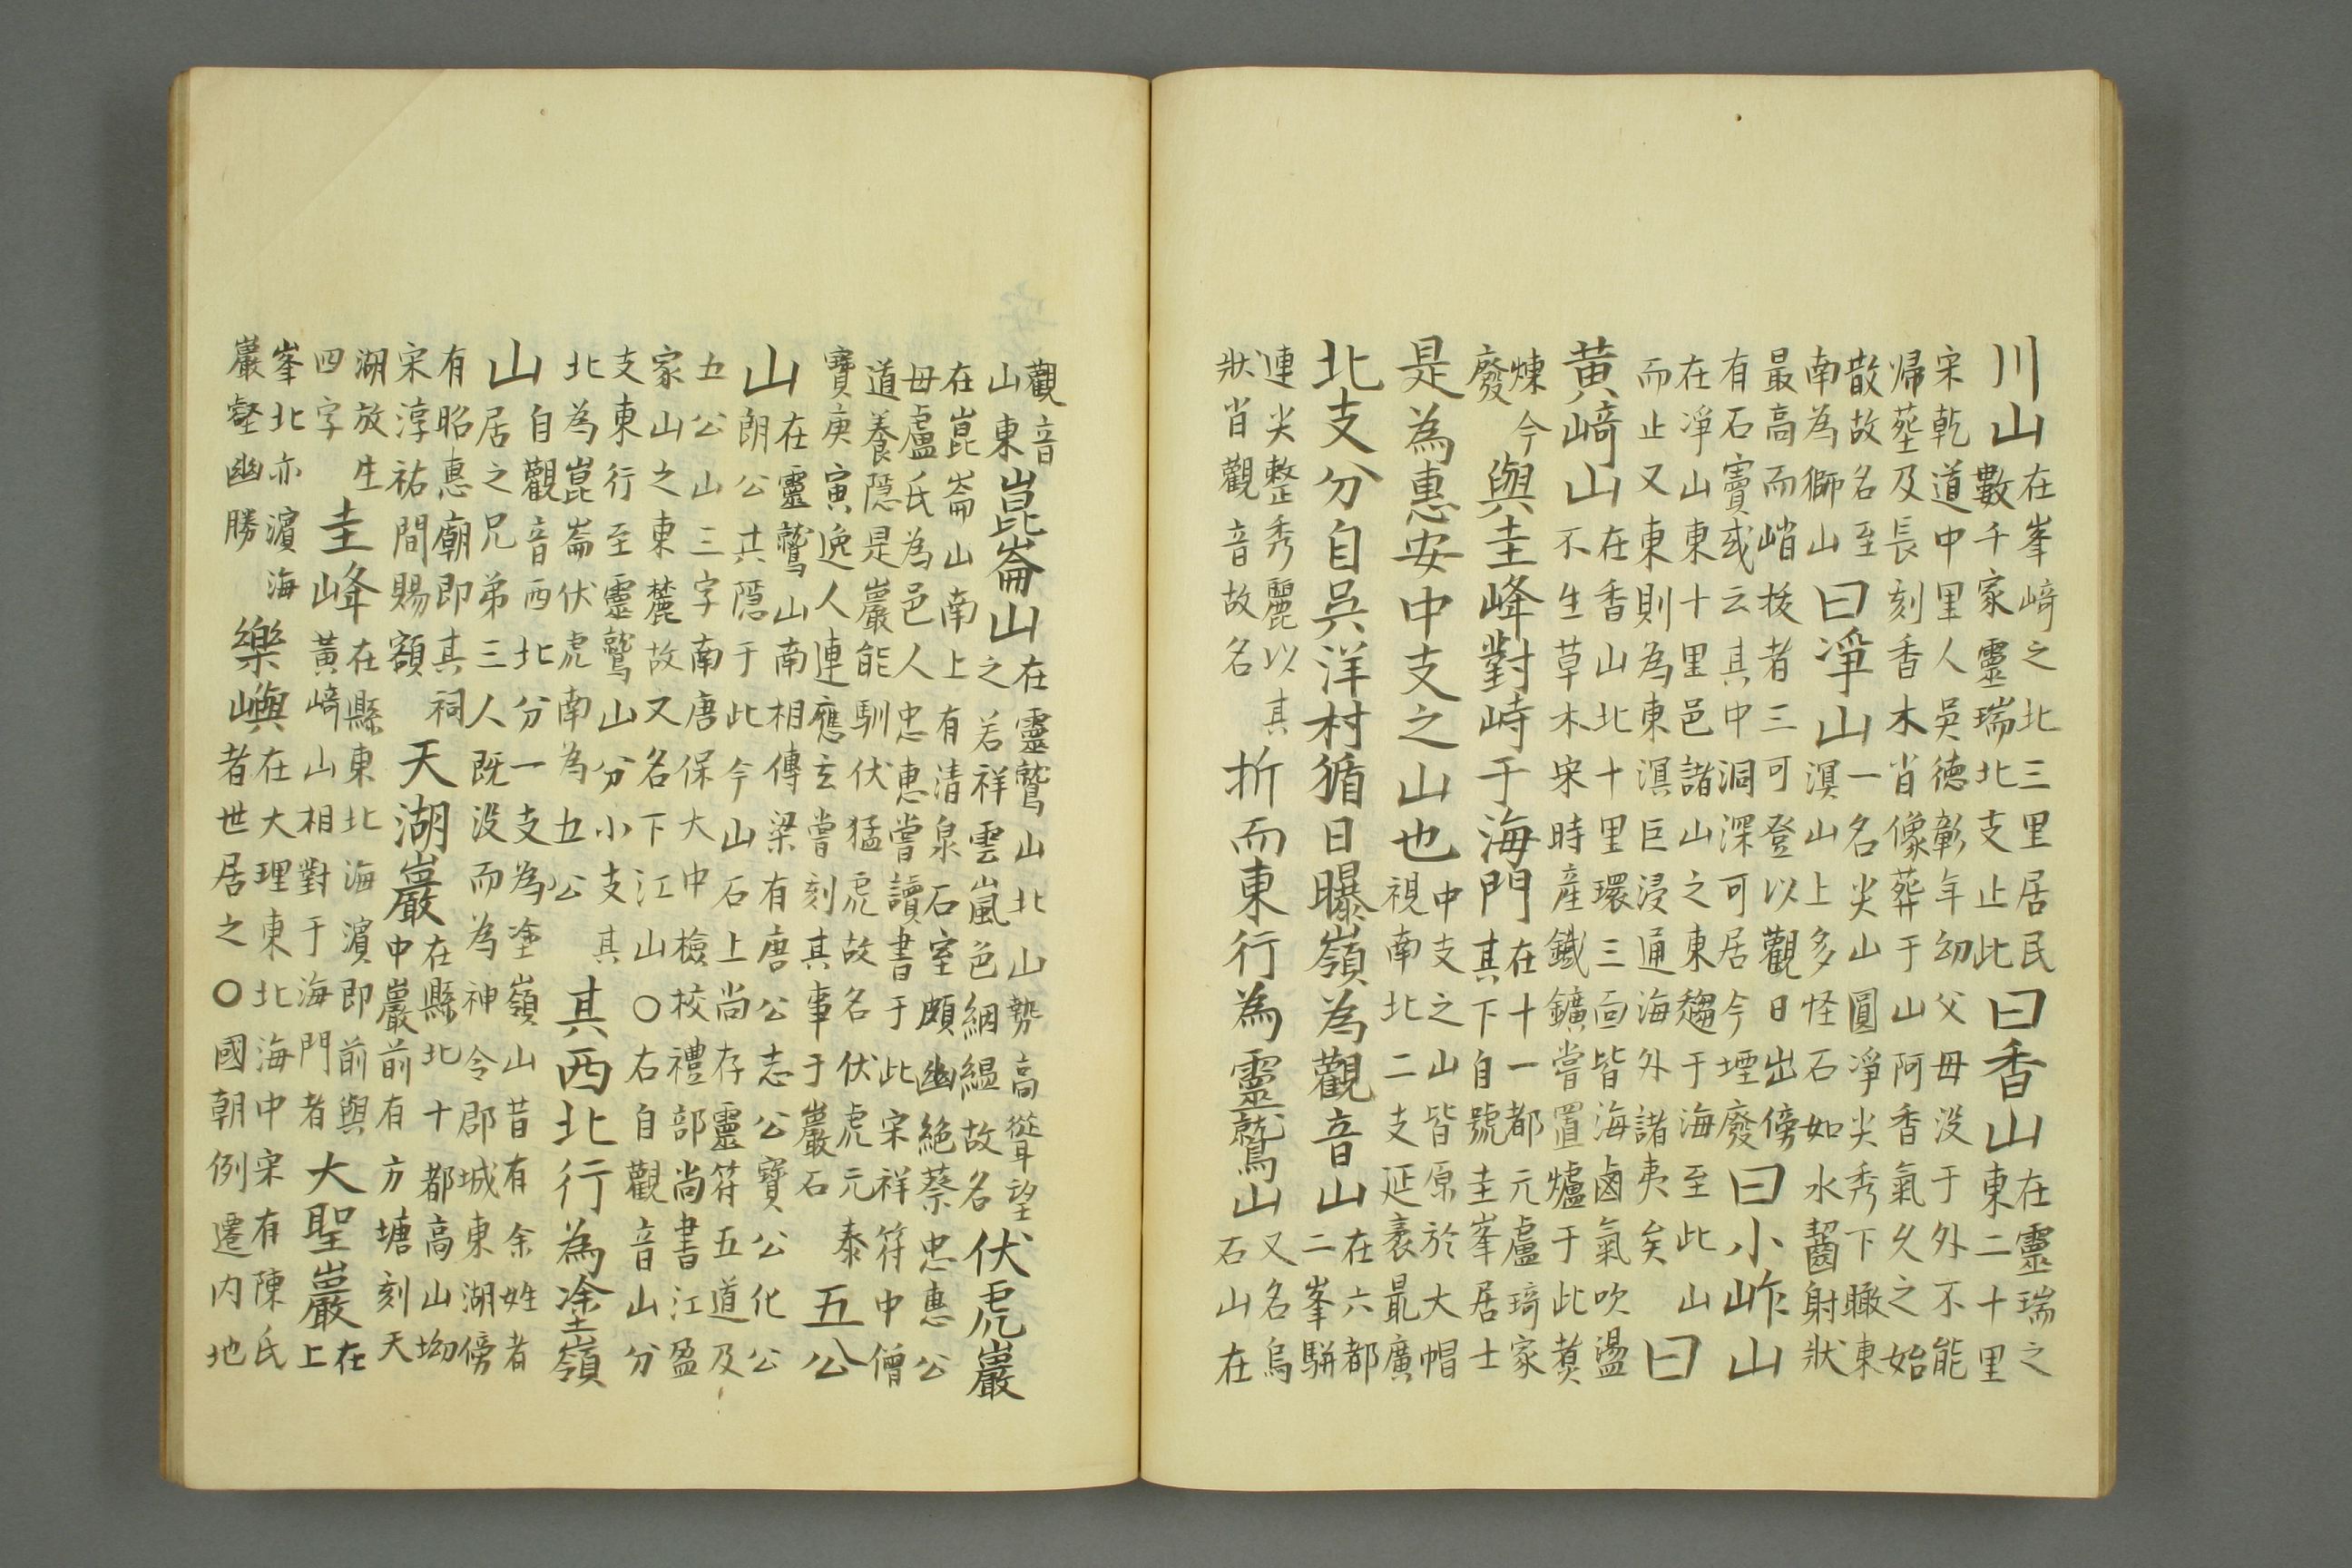 川山在峯﨑之北三里居民數千家靈瑞北支止此曰香山在靈瑞之東二十里
宋乾道中里人吳徳彰年幼父母没于外不能帰塟及長刻香木肖像葬于山阿香氣久之始
散故名至南為獅山曰凈山一名尖山圓凈尖秀下瞰東溟山上多怪石如水齧射狀
最高而峭拔者三可登以觀日出傍有石竇或云其中洞深可居今堙廢曰小岞山
在凈山東十里邑諸山之東趨于海至此山而止又東則為東溟巨浸通海外諸夷矣曰
黄﨑山在香山北十里環三靣皆海鹵氣吹盪不生草木宋時産鐡鑛嘗置爐于此煑
煉今廢與圭峰對峙于海門在十一都元盧琦家其下自號圭峯居士
是為惠安中支之山也中支之山皆原於大帽視南北二支延袤最廣
北支分自吳洋村循日曝嶺為觀音山在六都二峯駢
連尖整秀麗以其狀肖觀音故名折而東行為靈鷲山又名烏石山在
觀音山東崑崙山在靈鷲山北山勢高聳望之若祥雲嵐色絪縕故名伏虎巖
在崑崙山南上有清泉石室頗幽絶蔡忠惠公母盧氏為邑人忠惠嘗讀書于此宋祥符中僧
道養隱是巖能馴伏猛虎故名伏虎元泰寶庚寅逸人連應玄嘗刻其事于巖石五公
山在靈鷲山南相傳梁有唐公志公寶公化公朗公共隱于此今山石上尚存靈符五道及
五公山三字南唐保大中檢校禮部尚書江盈家山之東麓故又名下江山○右自觀音山分
支東行至靈鷲山分小支其北為崑崙伏虎南為五公其西北行為塗嶺
山自觀音西北分一支為塗嶺山昔有余姓者居之兄弟三人既没而為神令郡城東湖傍
有昭惠廟即其祠宋淳祐間賜額天湖巖在縣北十都高山坳中巖前有方塘刻天
湖放生四字圭峰在縣東北海濵即前與黃﨑山相對于海門者大聖巖在上
峯北亦濵海巖壑幽勝樂嶼在大理東北海中宋有陳氏者世居之○國朝例遷内地